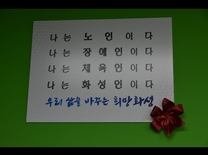 나는 노인이다
나는 장애인이다
나는 체육인이다
나는 화성인이다
우리 삶을 바꾸는 희망화성